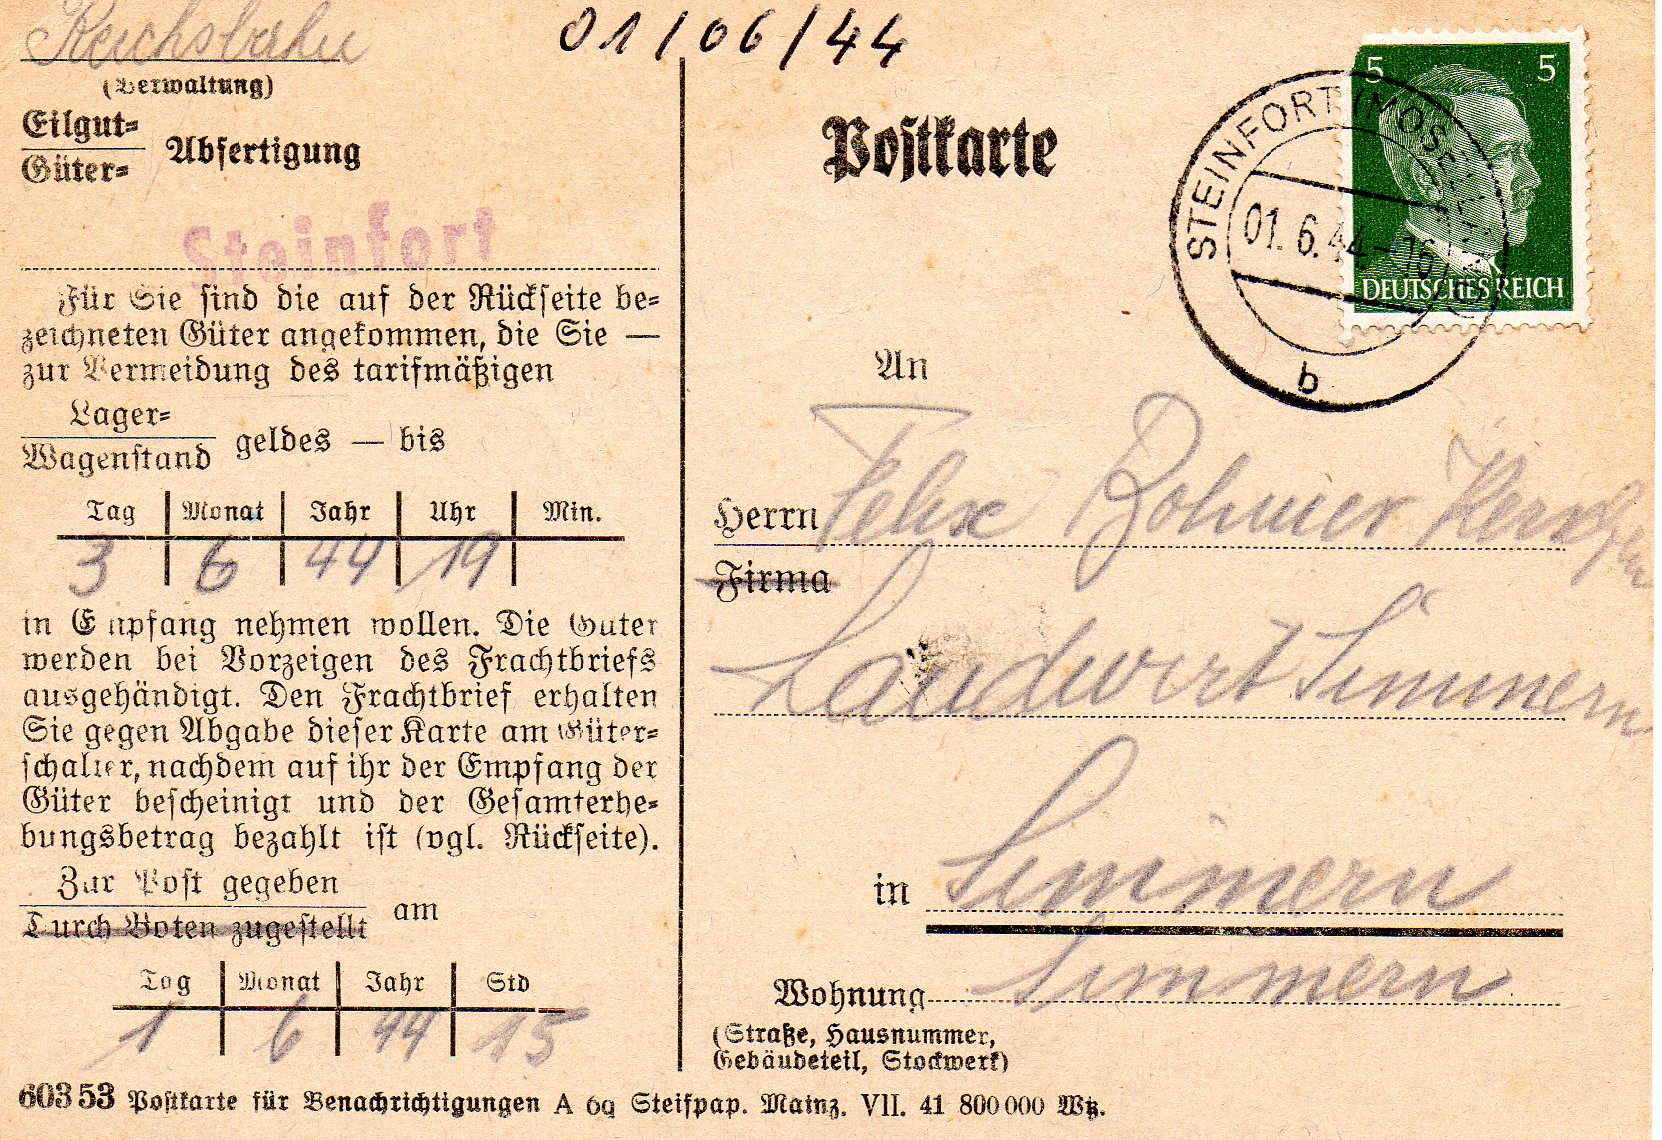 Reichsbahn
01/06/44
(Verwaltung)
Eilgut-
Güter-
Abfertigung
Steinfort
Für Sie sind die auf der Rückseite be-
zeichneten Güter angekommen, die Sie —
zur Vermeidung des tarifmäßigen
Lager-
Wagenstand
geldes — bis
Tag Monat Jahr Uhr Min.
3 6 44 19
in Empfang nehmen wollen. Die Güter
werden bei Vorzeigen des Frachtbriefs
ausgehändigt. Den Frachtbrief erhalten
Sie gegen Abgabe dieser Karte am Güter-
schalter, nachdem auf ihr der Empfang der
Güter bescheinigt und der Gesamterhe-
bungsbetrag bezahlt ist (vgl. Rückseite).
Zur Post gegeben
Durch Boten zugestellt
am
Tag Monat Jahr Std
1 6 44 15
Postkarte
5 5
DEUTSCHES REICH
STEINFORT
01.6.44-16
b
An
Herrn Felix Bohmer
Firma
Landwirt Simmern
in Simmern
Wohnung Simmern
(Straße, Hausnummer,
Gebäudeteil, Stockwerk)
603 53 Postkarte für Benachrichtigungen A 6q Steifpap. Mainz. VII. 41 800 000 Wtz.